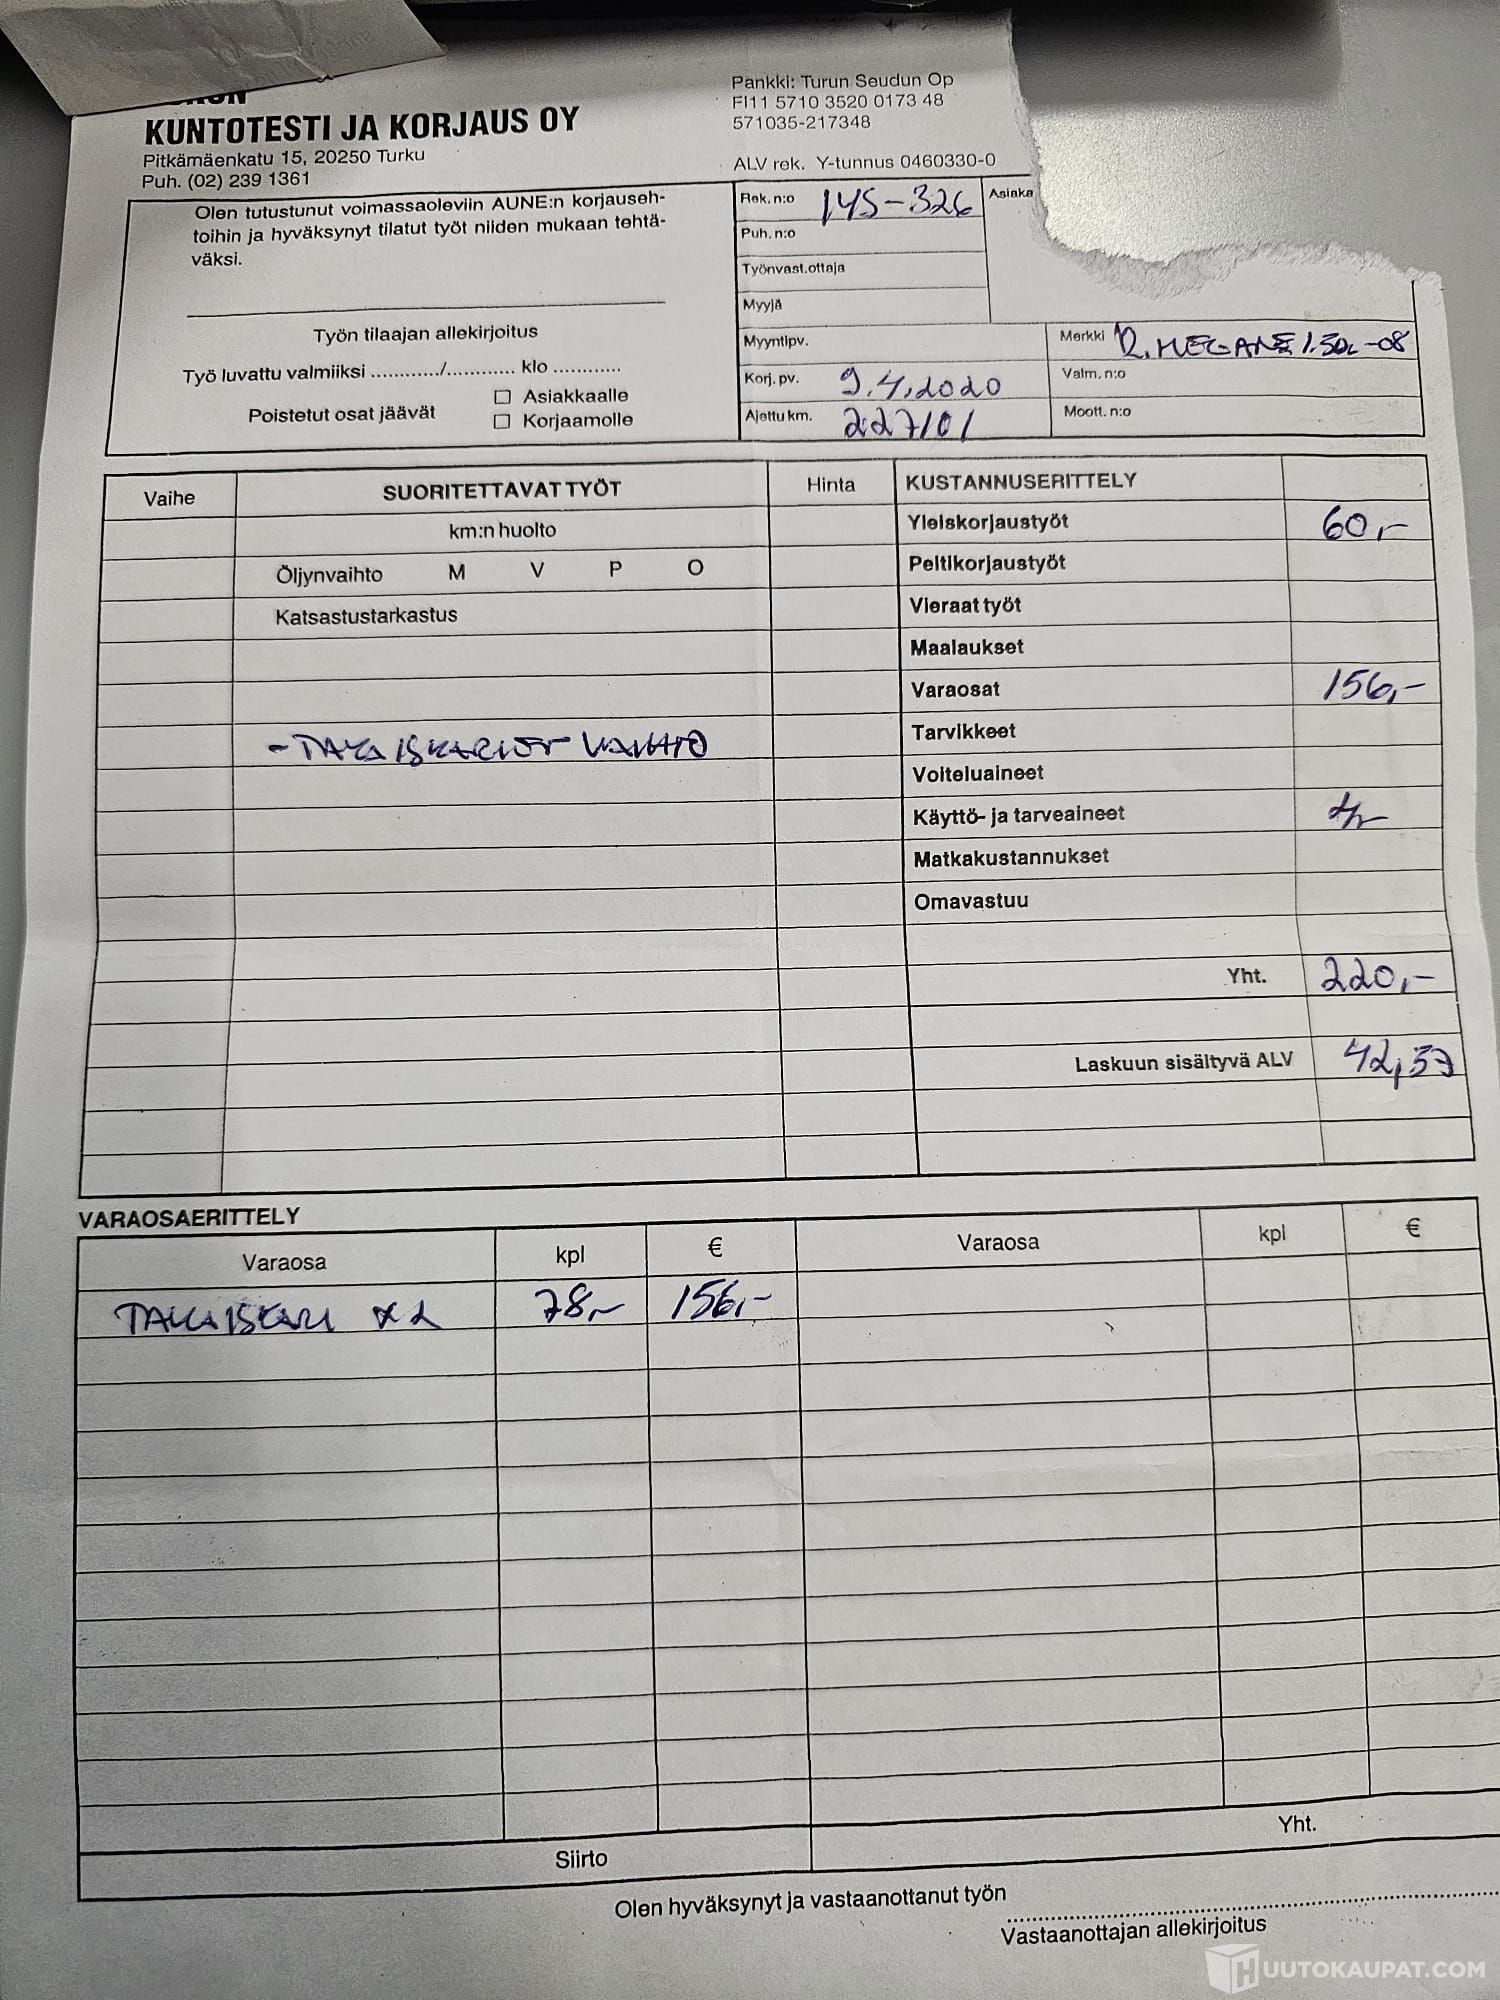 KUNTOTESTI JA KORJAUS OY
Pitkämäenkatu 15, 20250 Turku
Puh. (02) 239 1361
Pankki: Turun Seudun Op
FI11 5710 3520 0173 48
571035-217348
ALV rek. Y-tunnus 0460330-0
Olen tutustunut voimassaoleviin AUNE:n korjauseh-
toihin ja hyväksynyt tilatut työt niiden mukaan tehtä-
väksi.
Työn tilaajan allekirjoitus
Työ luvattu valmiiksi ............/............ klo ............
Poistetut osat jäävät
Asiakkaalle
Korjaamolle
Rek. n:o -326
Asiaka
Puh. n:o
Työnvast.ottaja
Myyjä
Myyntipv.
Merkki R. MEGANE 1.5DL -08
Korj. pv. 9.4.2020
Valm. n:o
Ajettu km. 227101
Moott. n:o
Vaihe SUORITETTAVAT TYÖT Hinta KUSTANNUSERITTELY
km:n huolto
Öljynvaihto M V P O
Katsastustarkastus
- TAKAISKARIEN VAIHTO
Yleiskorjaustyöt 60,-
Peltikorjaustyöt
Vieraat työt
Maalaukset
Varaosat 156,-
Tarvikkeet
Voiteluaineet
Käyttö- ja tarveaineet 4,-
Matkakustannukset
Omavastuu
Yht. 220,-
Laskuun sisältyvä ALV 42,57
VARAOSAERITTELY
Varaosa kpl € Varaosa kpl €
TAKAISKARI x 2 78,- 156,-
Siirto Yht.
Olen hyväksynyt ja vastaanottanut työn
Vastaanottajan allekirjoitus
HUUTOKAUPAT.COM